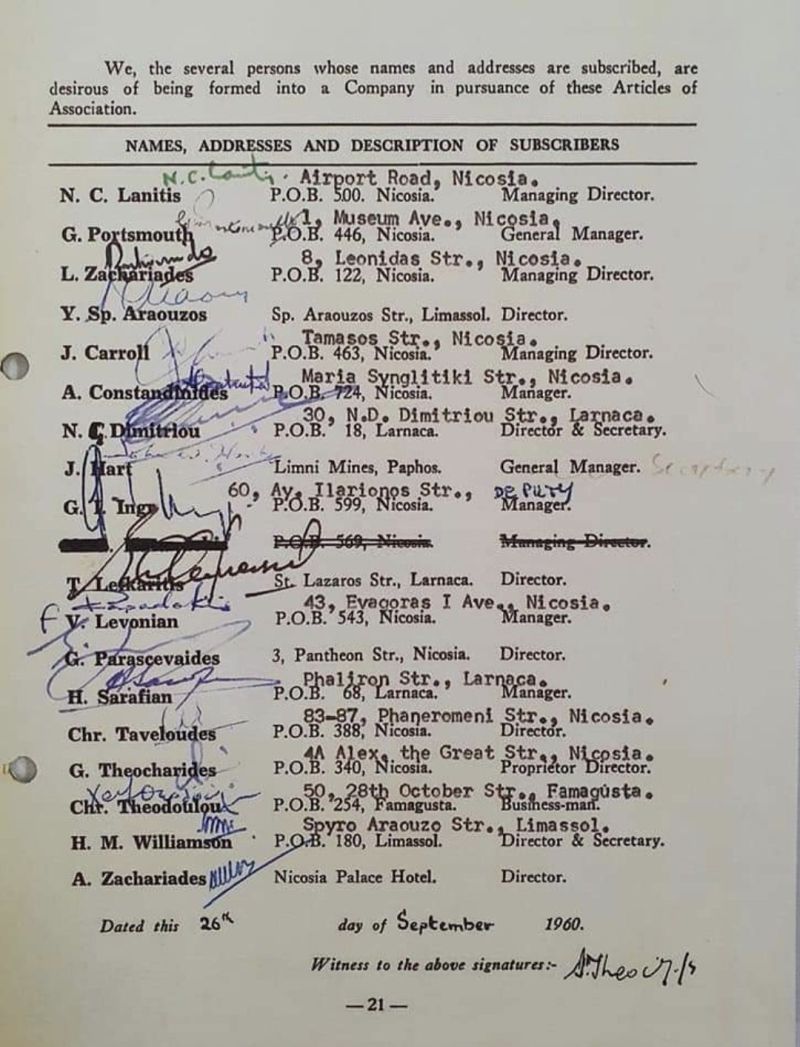 We, the several persons whose names and addresses are subscribed, are
desirous of being formed into a Company in pursuance of these Articles of
Association.
NAMES, ADDRESSES AND DESCRIPTION OF SUBSCRIBERS
N.C. Lanitis Airport Road, Nicosia.
N. C. Lanitis P.O.B. 500. Nicosia. Managing Director.
1, Museum Ave., Nicosia.
G. Portsmouth P.O.B. 446, Nicosia. General Manager.
8, Leonidas Str., Nicosia.
L. Zachariades P.O.B. 122, Nicosia. Managing Director.
Y. Sp. Araouzos Sp. Araouzos Str., Limassol. Director.
Tamasos Str., Nicosia.
J. Carroll P.O.B. 463, Nicosia. Managing Director.
Maria Synglitiki Str., Nicosia.
A. Constandinides P.O.B. 724, Nicosia. Manager.
30, N.D. Dimitriou Str., Larnaca.
N. Dimitriou P.O.B. 18, Larnaca. Director & Secretary.
J. Hart Limni Mines, Paphos. General Manager.
60, Av. Ilarionos Str., DEPUTY
G. Ingr P.O.B. 599, Nicosia. Manager.
P.O.B. 569, Nicosia. Managing Director.
T. Lefkaritis St. Lazaros Str., Larnaca. Director.
43, Evagoras I Ave., Nicosia.
V. Levonian P.O.B. 543, Nicosia. Manager.
G. Parascevaides 3, Pantheon Str., Nicosia. Director.
Phaliron Str., Larnaca.
H. Sarafian P.O.B. 68, Larnaca. Manager.
83-87, Phaneromeni Str., Nicosia.
Chr. Taveloudes P.O.B. 388, Nicosia. Director.
4A Alex. the Great Str., Nicosia.
G. Theocharides P.O.B. 340, Nicosia. Proprietor Director.
50, 28th October Str., Famagusta.
Chr. Theodoulou P.O.B. 254, Famagusta. Business-man.
Spyro Araouzo Str., Limassol.
H. M. Williamson P.O.B. 180, Limassol. Director & Secretary.
A. Zachariades Nicosia Palace Hotel. Director.
Dated this 26th day of September 1960.
Witness to the above signatures:-
—21—